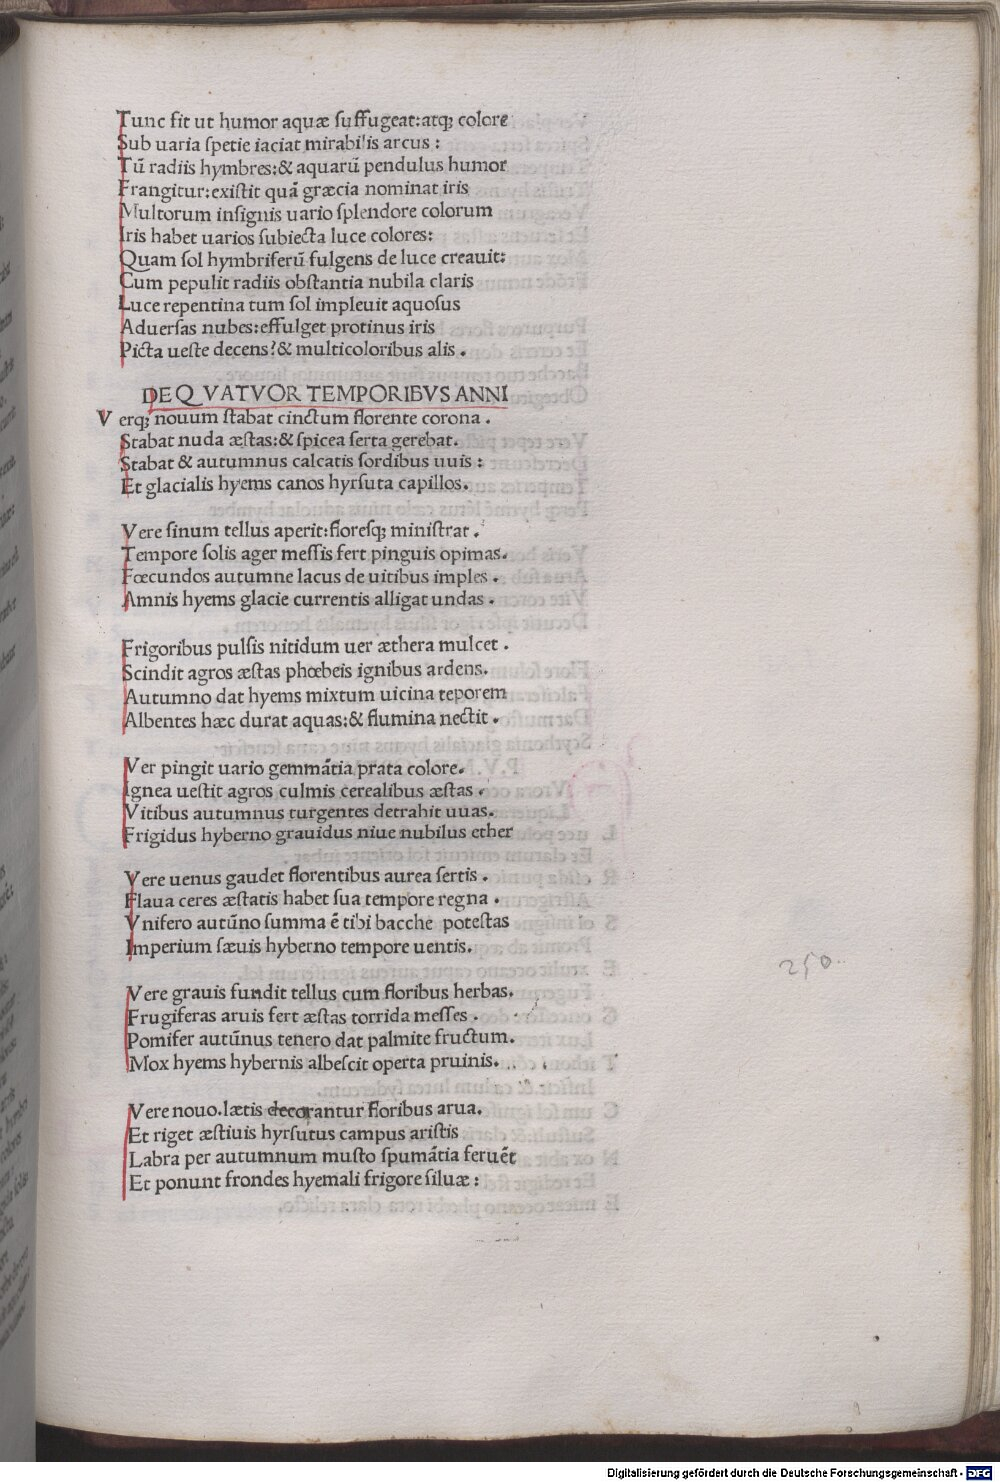 Tunc fit ut humor aquæ ſuffugeat:atq; colore
Sub uaria ſpetie iaciat mirabilis arcus :
Tū radiis hymbres:& aquarū pendulus humor
Frangitur:exiſtit quā græcia nominat iris
Multorum inſignis uario ſplendore colorum
Iris habet uarios ſubiecta luce colores:
Quam ſol hymbriferū fulgens de luce creauit:
Cum pepulit radiis obſtantia nubila claris
Luce repentina tum ſol impleuit aquoſus
Aduerſas nubes:effulget protinus iris
Picta ueſte decens?& multicoloribus alis .
DE Q VATVOR TEMPORIBVS ANNI
V erq; nouum ſtabat cinctum florente corona .
Stabat nuda æſtas:& ſpicea ſerta gerebat.
Stabat & autumnus calcatis ſordibus uuis :
Et glacialis hyems canos hyrſuta capillos.
Vere ſinum tellus aperit:floreſq; miniſtrat .
Tempore ſolis ager meſſis fert pinguis opimas.
Fœcundos autumne lacus de uitibus imples .
Amnis hyems glacie currentis alligat undas .
Frigoribus pulſis nitidum uer æthera mulcet .
Scindit agros æſtas phœbeis ignibus ardens.
Autumno dat hyems mixtum uicina teporem
Albentes hæc durat aquas:& flumina nectit .
Ver pingit uario gemmātia prata colore.
Ignea ueſtit agros culmis cerealibus æſtas .
Vitibus autumnus turgentes detrahit uuas.
Frigidus hyberno grauidus niue nubilus ether
Vere uenus gaudet florentibus aurea ſertis .
Flaua ceres æſtatis habet ſua tempore regna .
Vnifero autūno ſumma ē tibi bacche poteſtas
Imperium ſæuis hyberno tempore uentis.
Vere grauis fundit tellus cum floribus herbas.
Frugiferas aruis fert æſtas torrida meſſes .
Pomifer autūnus tenero dat palmite fructum.
Mox hyems hybernis albeſcit operta pruinis.
Vere nouo.lætis decorantur floribus arua.
Et riget æſtiuis hyrſutus campus ariſtis
Labra per autumnum muſto ſpumātia feruēt
Et ponunt frondes hyemali frigore ſiluæ :
250
Digitalisierung gefördert durch die Deutsche Forschungsgemeinschaft - DFG